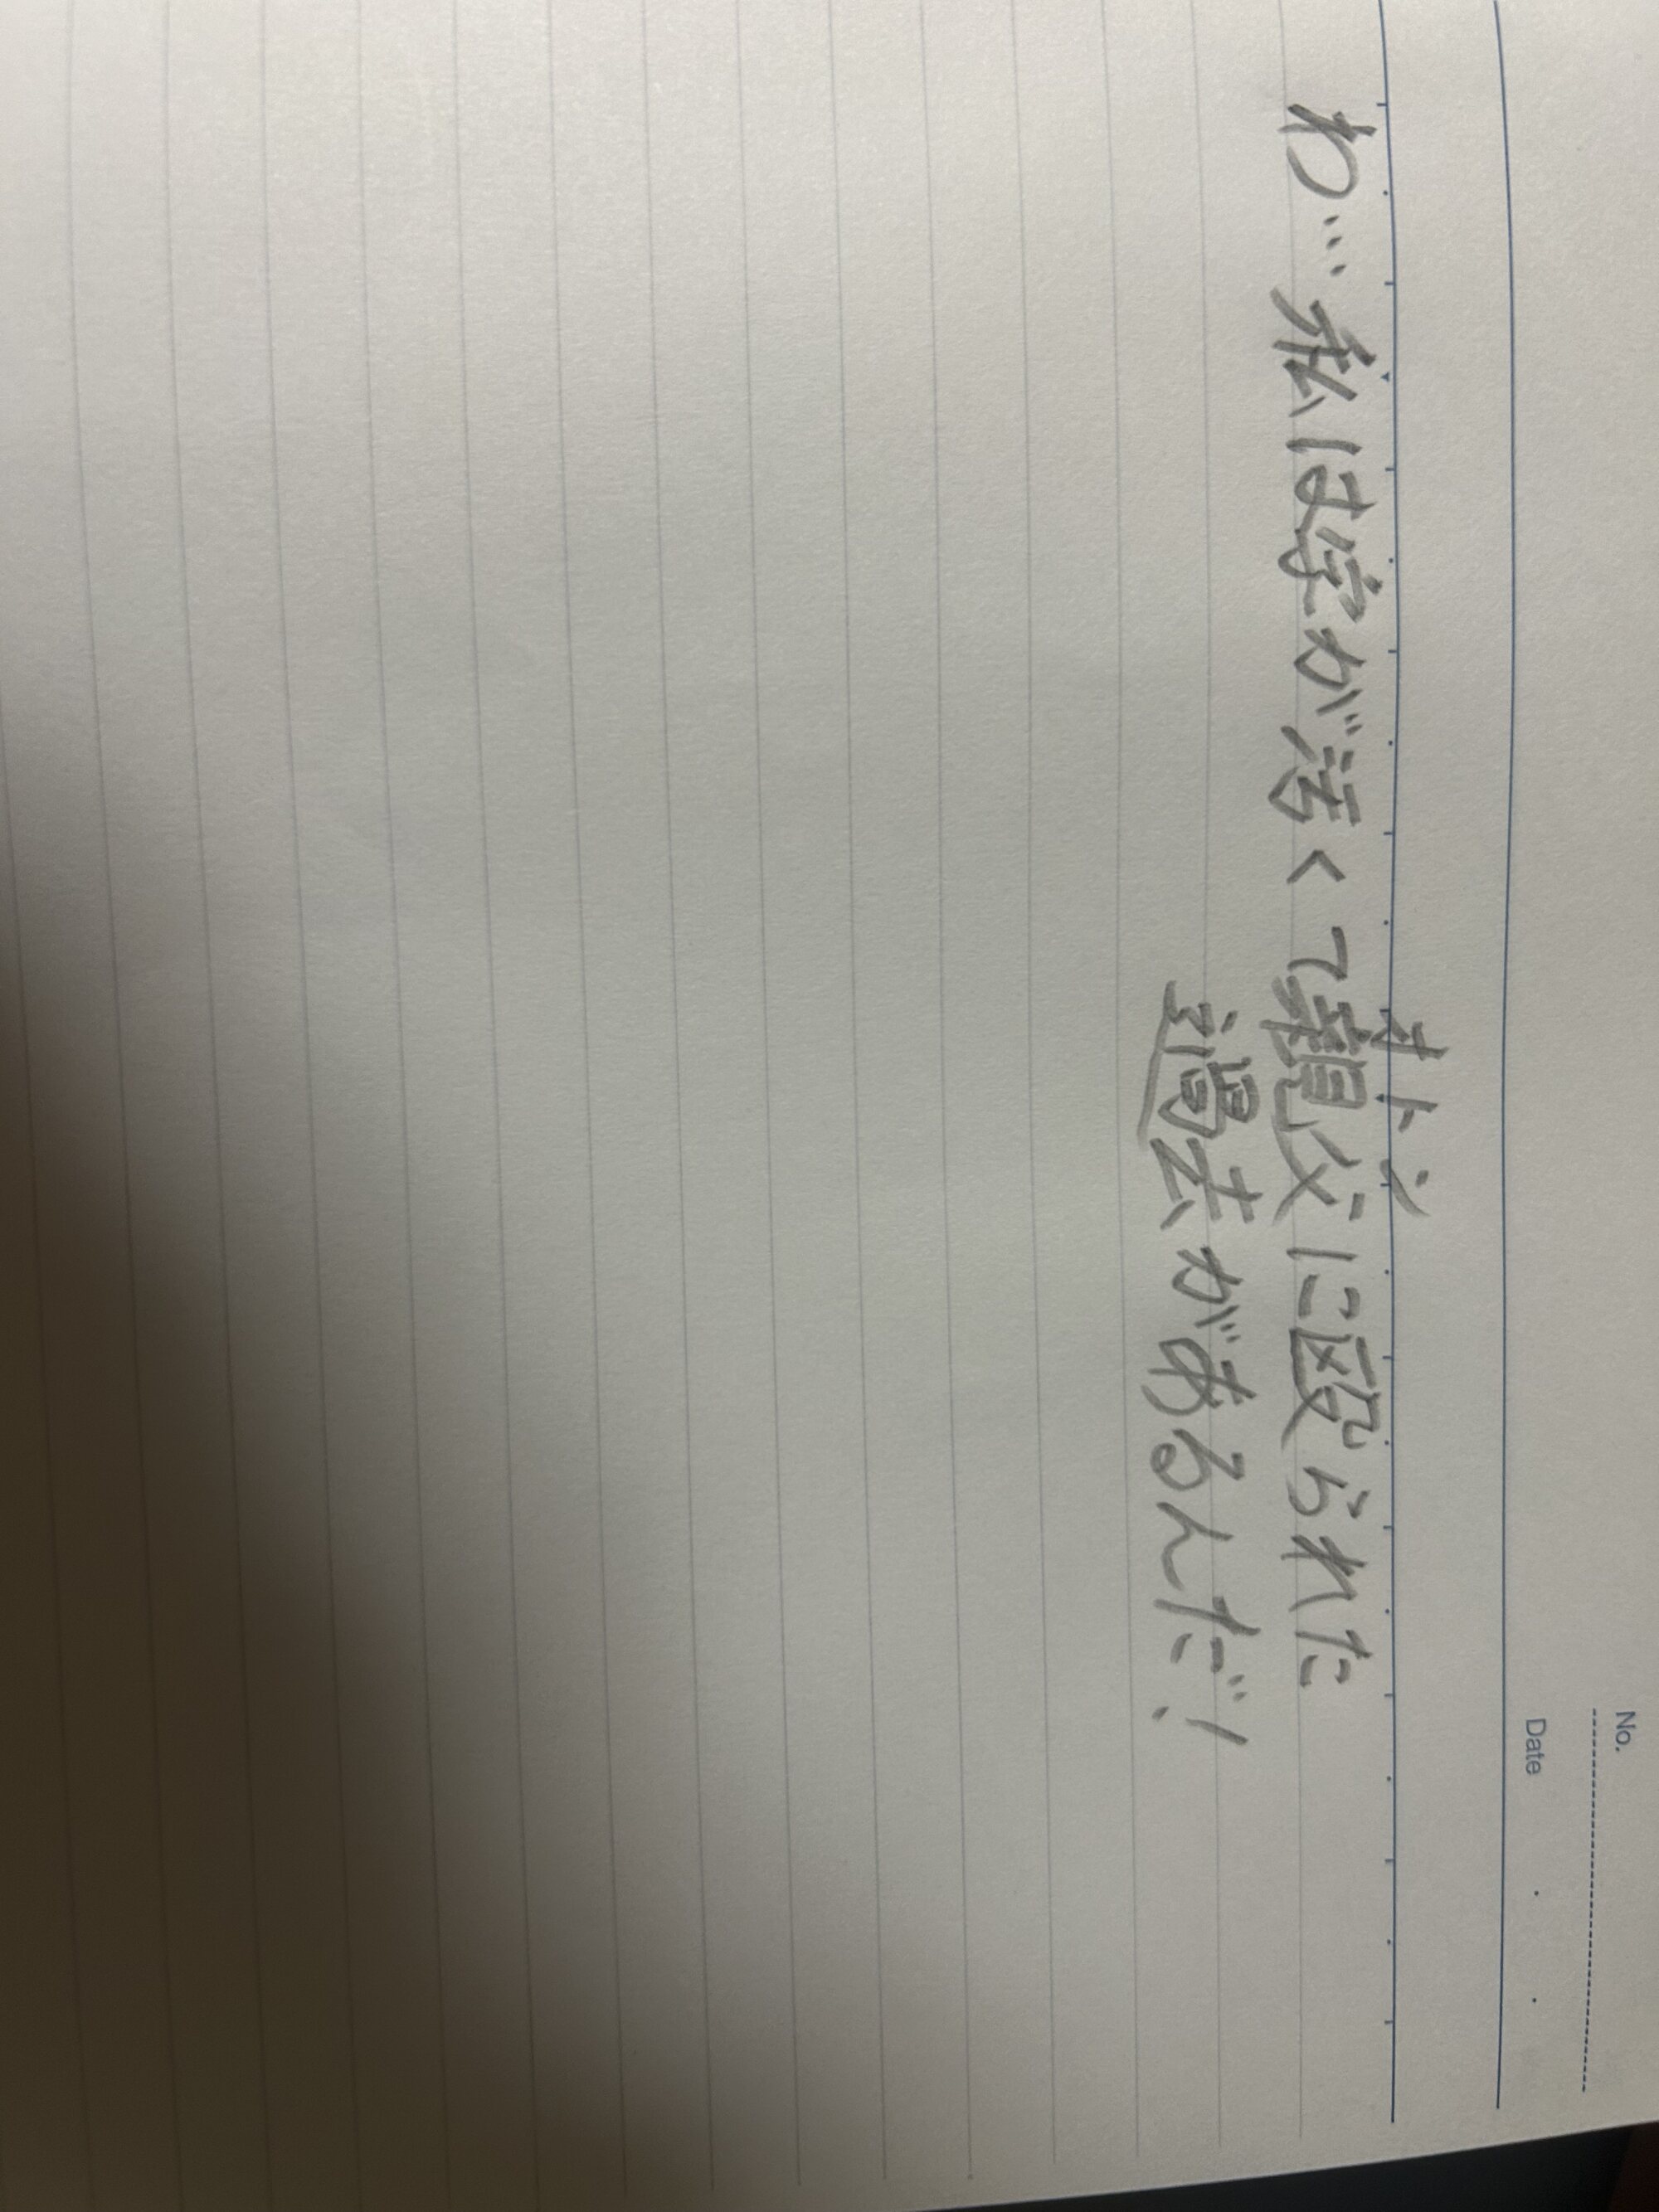 No.
Date
オトン
わ…私は字が汚くて親父に殴られた
過去があるんだ!